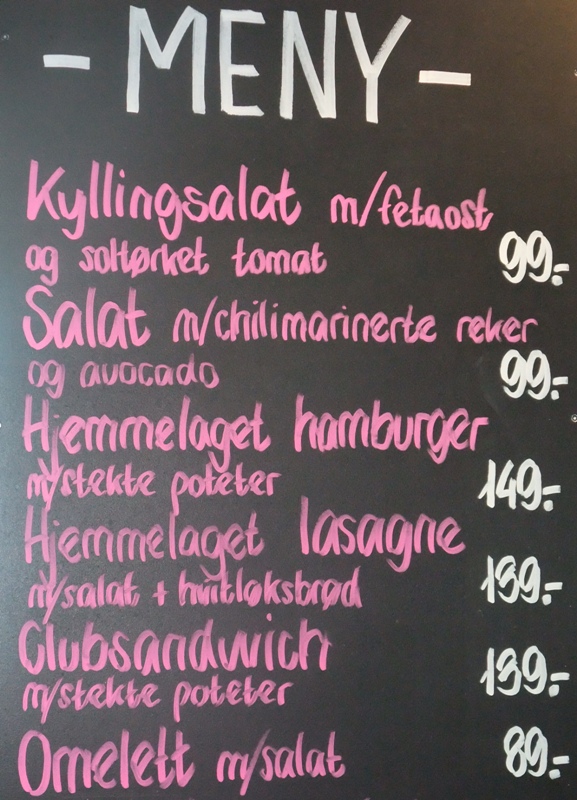 - MENY -
Kyllingsalat m/fetaost,
og soltørket tomat 99.-
Salat m/chilimarinerte reker
og avocado 99.-
Hjemmelaget hamburger
m/stekte poteter 149.-
Hjemmelaget lasagne
m/salat + hvitløksbrød 139.-
Clubsandwich
m/stekte poteter 139.-
Omelett m/salat 89.-